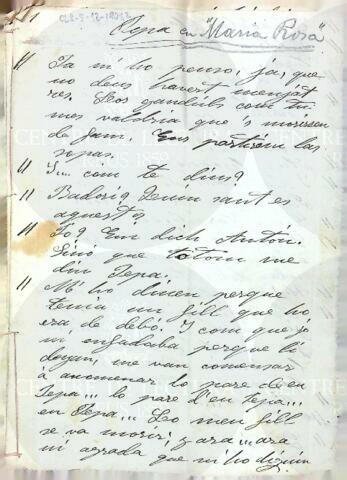 CLR-S-12-1804-2
Tepa en "Maria Rosa"
" Ja m'ho penso, ja, que
no deus havert menjat
res. Los gandúls com tu
mes valdria que 's morissen
de fam. Ens partirem las
sopas.
" I... com te dius?
" Badorig? Quin sant es
aquest?
" Jo? Em dich Antón.
Sinó que tothom me
diu Tepa.
" M' ho diuen perque
tenia un fill que ho
era de debó. I com que jo
m' enfadaba perque li
deyan, me van comensar
a anomenar lo pare de'n
Tepa... lo pare d'en Tepa...
en Tepa... Lo meu fill
se va morir; y ara... ara
m' agrada que m'ho digan